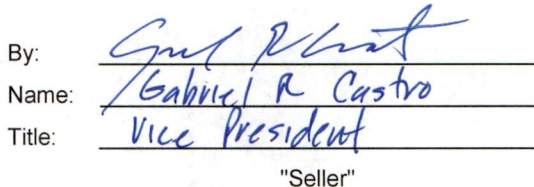 By:
Name: Gabriel R Castro
Title: Vice President
"Seller"